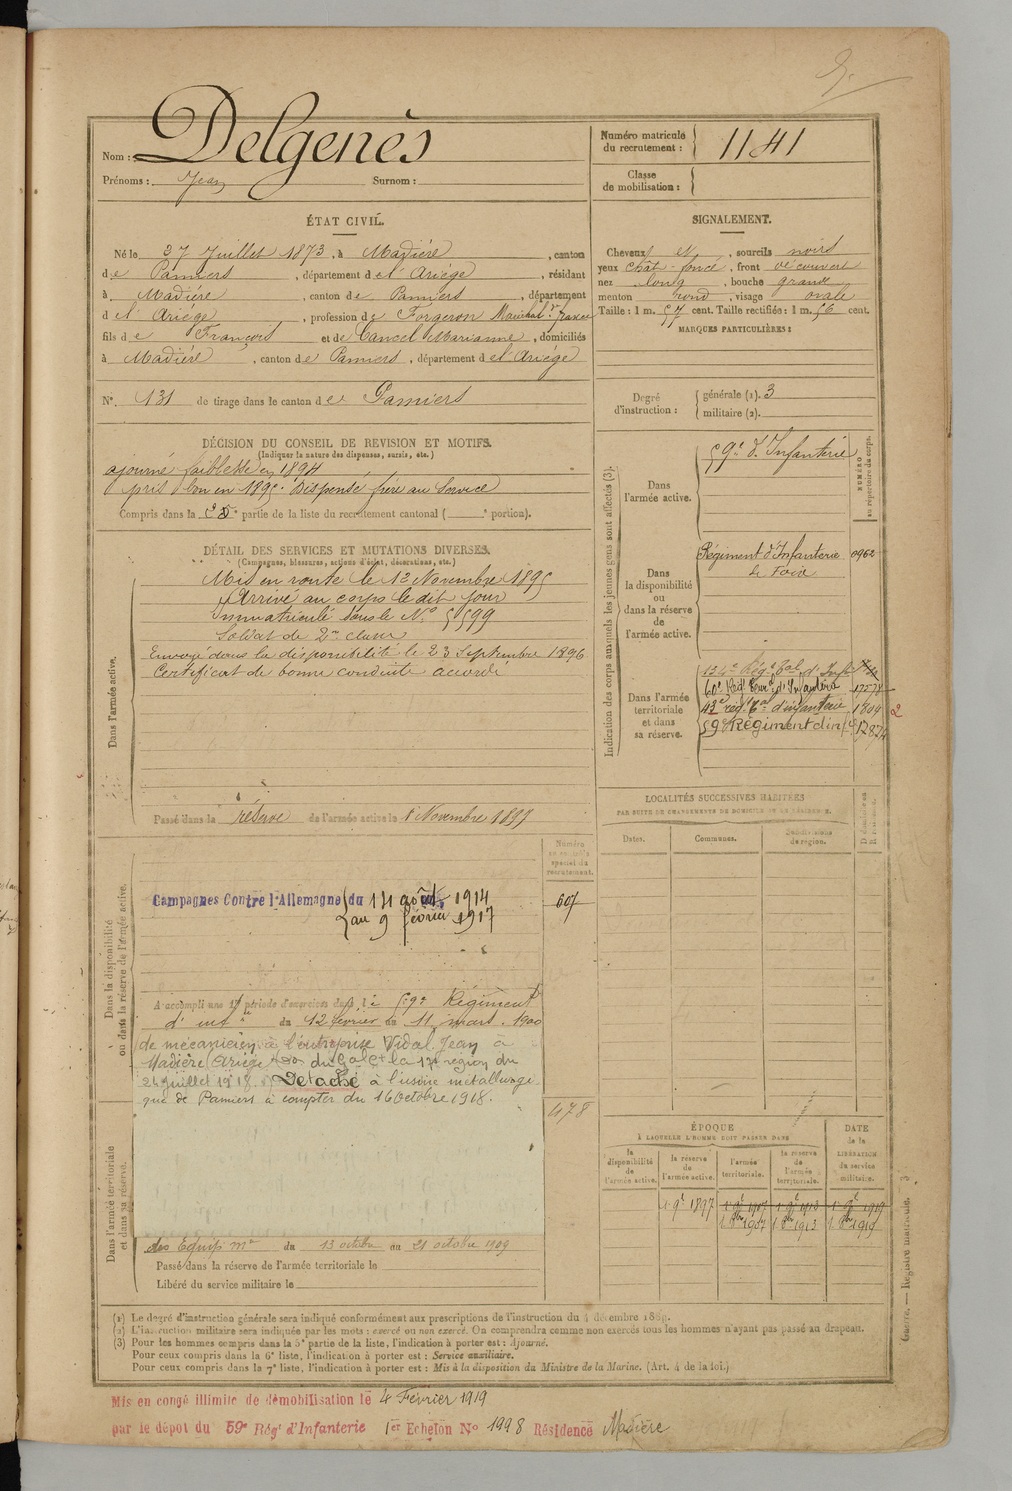 Nom : Delgenès
Prénoms : Jean Surnom :
Numéro matricule du recrutement : 1141
Classe de mobilisation :
ÉTAT CIVIL.
Né le 27 Juillet 1873, à Madière, canton
de Pamiers, département de l'Ariège, résidant
à Madière, canton de Pamiers, département
d l'Ariège, profession de Forgeron Maréchal
fils de François et de Cancel Marianne, domiciliés
à Madière, canton de Pamiers, département de l'Ariège
N° 131 de tirage dans le canton de Pamiers
SIGNALEMENT.
Cheveux et, sourcils noirs
yeux chât-foncé, front découvert
nez long, bouche grande
menton rond, visage ovale
Taille : 1 m. 57 cent. Taille rectifiée : 1 m. 56 cent.
MARQUES PARTICULIÈRES :
Degré d'instruction : générale (1). 3
militaire (2).
DÉCISION DU CONSEIL DE REVISION ET MOTIFS.
(Indiquer la nature des dispenses, sursis, etc.)
ajourné faiblesse en 1894
pris bon en 1895. Dispensé frère au Service
Compris dans la partie de la liste du recrutement cantonal ( portion).
DÉTAIL DES SERVICES ET MUTATIONS DIVERSES.
(Campagnes, blessures, actions d'éclat, décorations, etc.)
Dans l'armée active.
Mis en route le 12 Novembre 1895
Arrivé au corps le dit jour
Immatriculé sous le N° 5599
Soldat de 2me classe
Envoyé dans la disponibilité le 23 Septembre 1896
Certificat de bonne conduite accordé
Passé dans la réserve de l'armée active le 1 Novembre 1897
Indication des corps auxquels les jeunes gens sont affectés (3).
NUMÉRO au répertoire du corps.
Dans l'armée active.
59e d'Infanterie
Dans la disponibilité ou dans la réserve de l'armée active.
Régiment d'Infanterie 0962
de Foix
Dans l'armée territoriale et dans sa réserve.
134e Régt Tal d'Inf
60e Régt Terr d'Infanterie 17578
43e rég Tal d'infanterie 1804 2
59e Régiment d'inf 12874
LOCALITÉS SUCCESSIVES HABITÉES
PAR SUITE DE CHANGEMENTS DE DOMICILE OU DE RÉSIDENCE.
Dates. Communes. Subdivisions de région.
Dans la disponibilité ou dans la réserve de l'armée active.
Numéro au contrôle spécial du recrutement.
607
Campagnes Contre l'Allemagne du 14 août 1914
au 9 février 1917
A accompli une 1re période d'exercices dans le 59e Régiment
d'infie du 12 février au 11 mars 1900
de mécanicien à l'entreprise Vidal Jean à
Madière (Ariège) du Gal Ct la 17e région du
24 Juillet 1918. Détaché à l'usine métallurgi
que de Pamiers à compter du 16 Octobre 1918.
478
Dans l'armée territoriale et dans sa réserve.
des Equip du 13 octobre au 21 octobre 1909
Passé dans la réserve de l'armée territoriale le
Libéré du service militaire le
ÉPOQUE
À LAQUELLE L'HOMME DOIT PASSER DANS
DATE de la LIBÉRATION du service militaire.
la disponibilité de l'armée active.
la réserve de l'armée active.
l'armée territoriale.
la réserve de l'armée territoriale.
1 9e 1897 1 9e 1907 1 9e 1913 1 9e 1919
1 8bre 1907 1 8bre 1913 1 8bre 1919
(1) Le degré d'instruction générale sera indiqué conformément aux prescriptions de l'instruction du 4 décembre 1889.
(2) L'instruction militaire sera indiquée par les mots : exercé ou non exercé. On comprendra comme non exercés tous les hommes n'ayant pas passé au drapeau.
(3) Pour les hommes compris dans la 5e partie de la liste, l'indication à porter est : Ajourné.
Pour ceux compris dans la 6e liste, l'indication à porter est : Service auxiliaire.
Pour ceux compris dans la 7e liste, l'indication à porter est : Mis à la disposition du Ministre de la Marine. (Art. 4 de la loi.)
Guerre. — Registre matricule.
Mis en congé illimité de démobilisation le 4 Février 1919
par le dépôt du 59e Régt d'Infanterie 1er Echelon No 1998 Résidence Madière